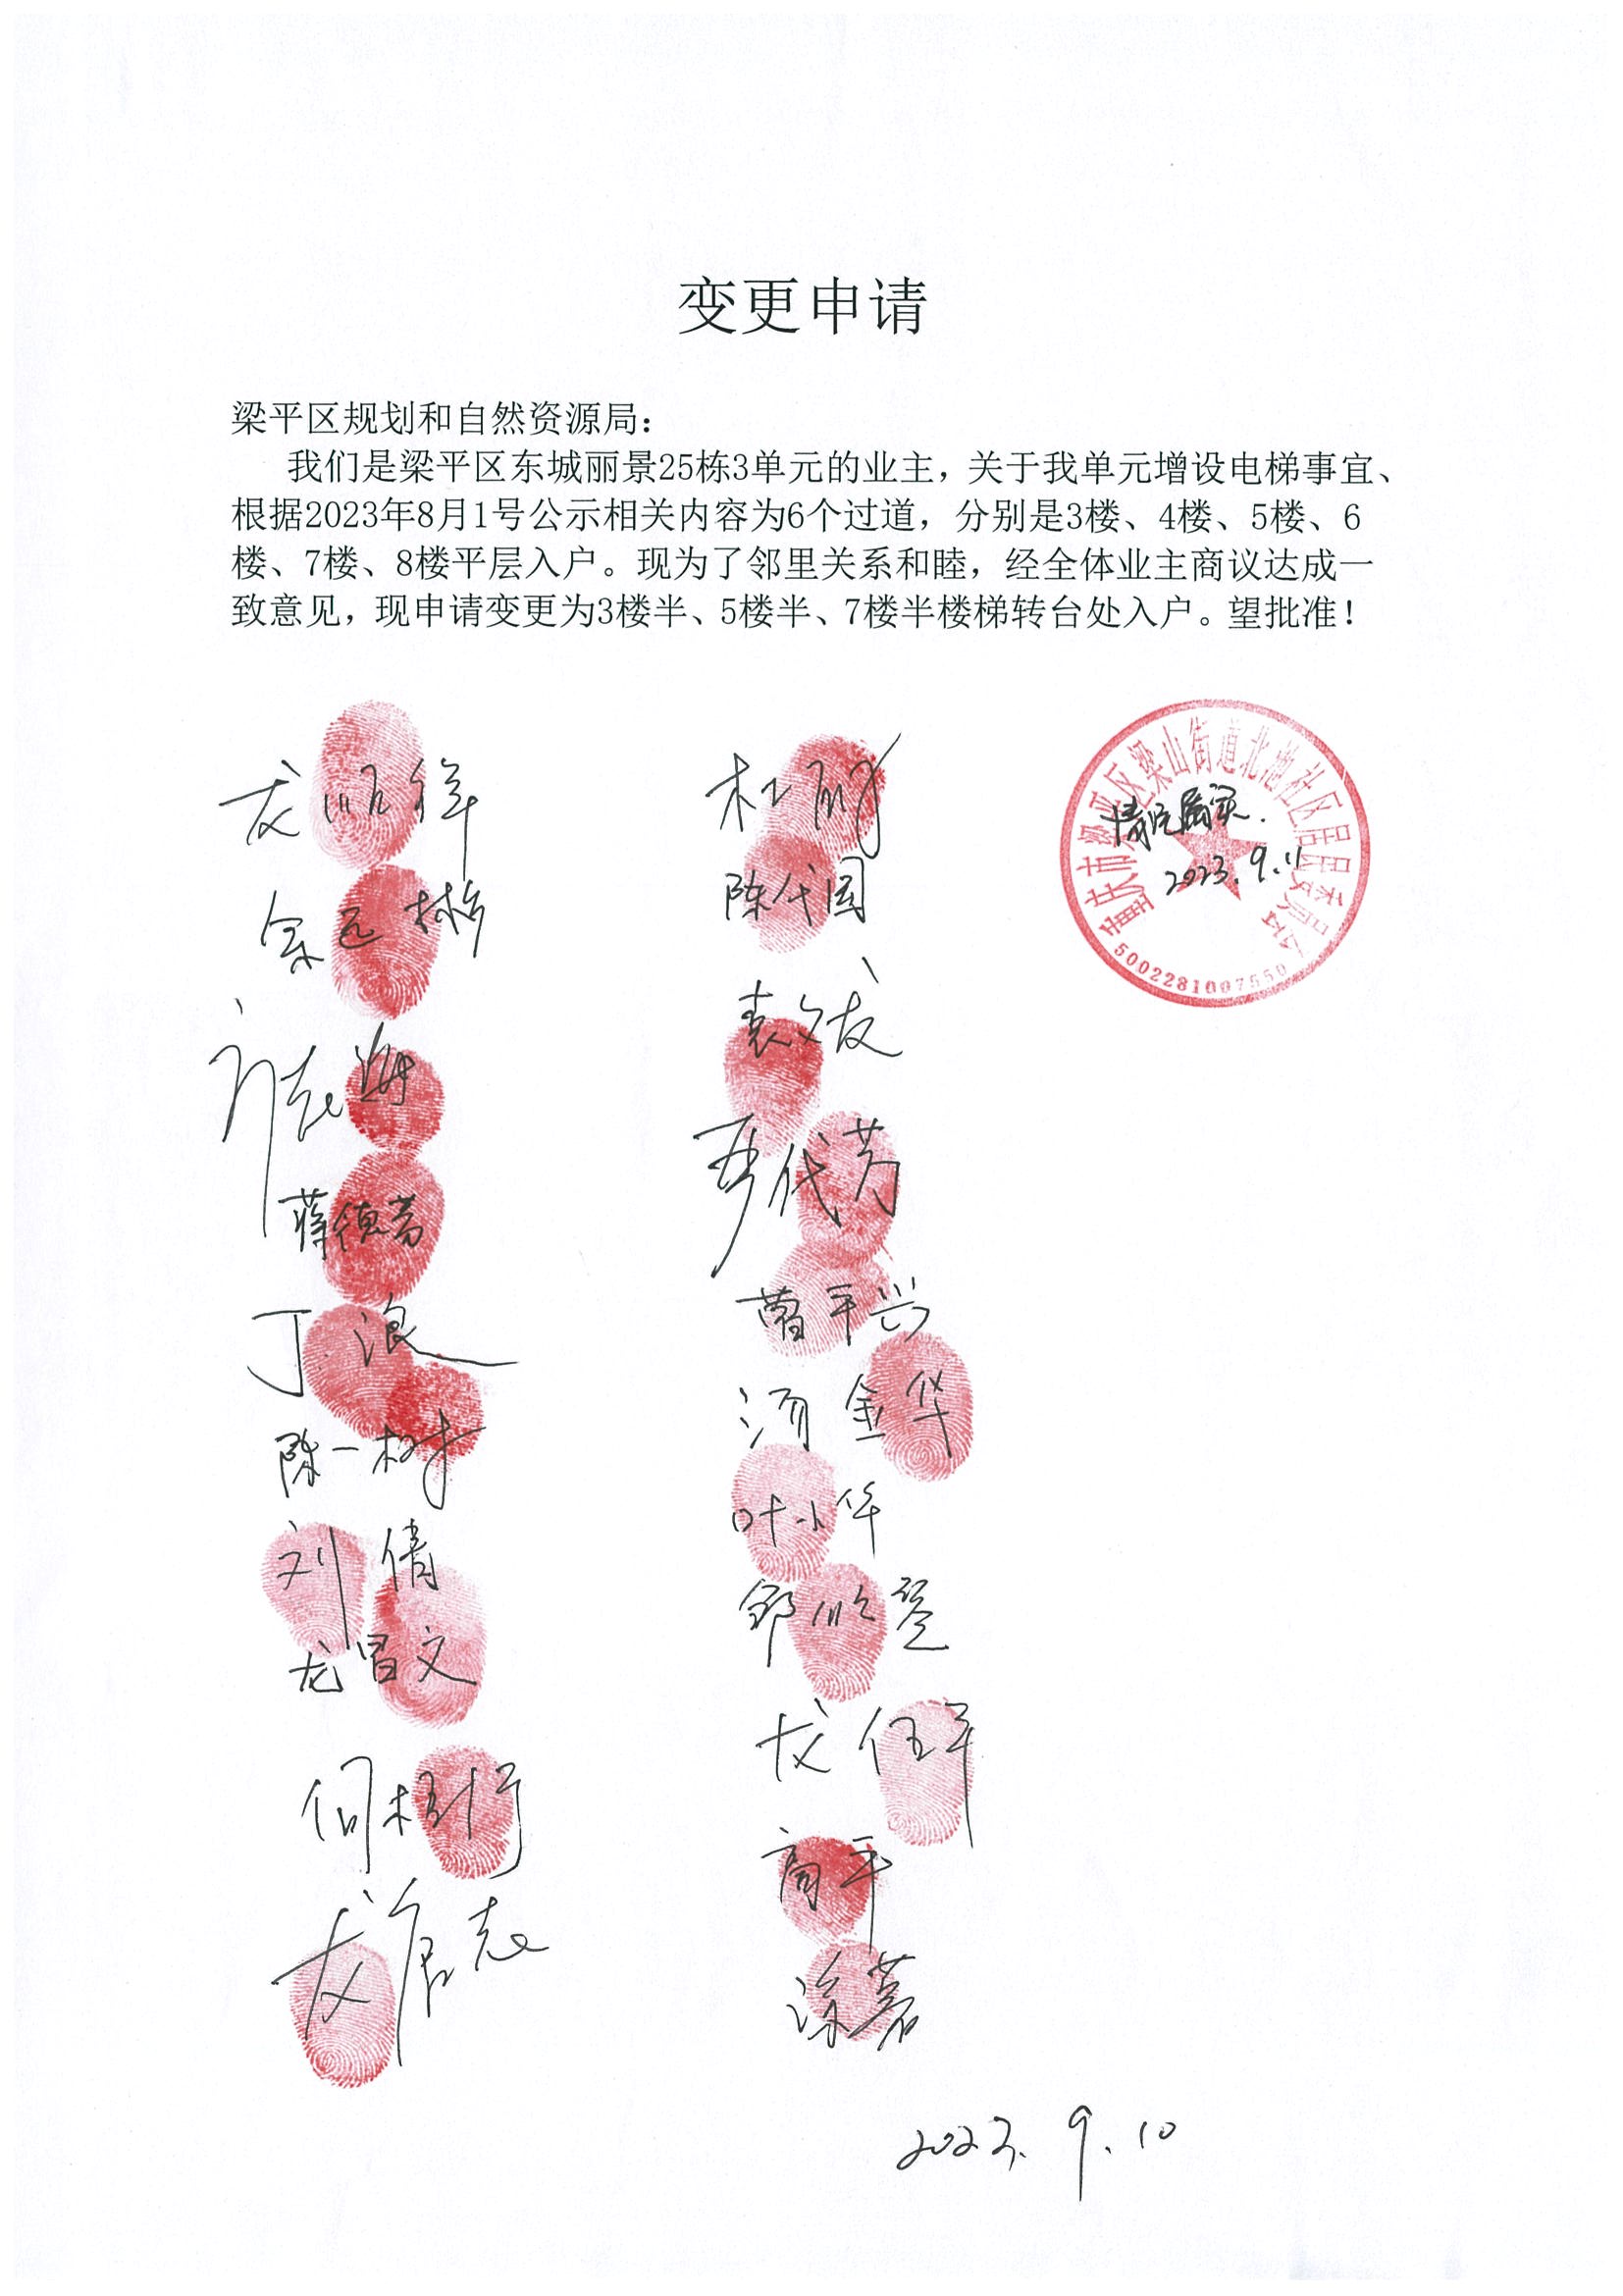 变更申请
梁平区规划和自然资源局：
我们是梁平区东城丽景25栋3单元的业主，关于我单元增设电梯事宜、
根据2023年8月1号公示相关内容为6个过道，分别是3楼、4楼、5楼、6
楼、7楼、8楼平层入户。现为了邻里关系和睦，经全体业主商议达成一
致意见，现申请变更为3楼半、5楼半、7楼半楼梯转台处入户。望批准！
重庆市梁平区梁山街道北池社区居民委员会
情况属实.
2023.9.11
5002281007550
余远彬
蒋德芳
丁浪
陈一树
刘倩
龙昌文
杜丽
陈代国
曹平兴
汤金华
叶小华
高平
涂茗
2023.9.10